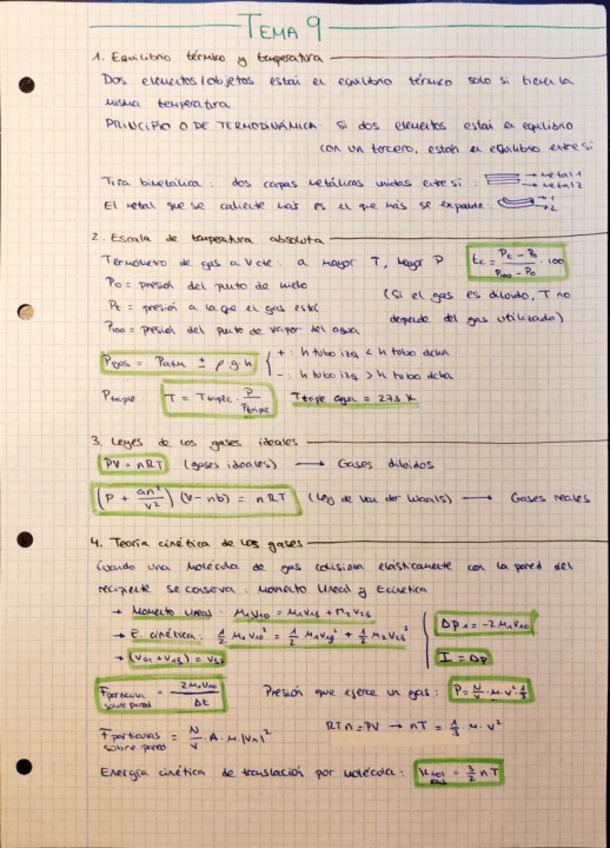 TEMA 9
1. Equilibrio térmico y temperatura
Dos elementos/objetos están en equilibrio térmico solo si tienen la
misma temperatura
PRINCIPIO 0 DE TERMODINÁMICA: Si dos elementos están en equilibrio
con un tercero, están en equilibrio entre sí
Tira bimetálica: dos capas metálicas unidas entre sí: → metal 1
→ metal 2
El metal que se caliente más es el que más se expande: → 1
→ 2
2. Escala de temperatura absoluta
Termómetro de gas a V cte: a mayor T, mayor P
tc = (Pt - P0)/(P100 - P0) · 100
P0 = presión del punto de hielo
(Si el gas es diluido, T no
Pt = presión a la que el gas está
depende del gas utilizado)
P100 = presión del punto de vapor del agua
Pgas = Patm ± ρ·g·h
+: h tubo izq < h tubo dcha
-: h tubo izq > h tubo dcha
Ptriple
T = Ttriple · P/Ptriple
Ttriple agua = 273 K
3. Leyes de los gases ideales
PV = nRT (gases ideales) → Gases diluidos
(P + an²/V²) (V - nb) = nRT (Ley de Van der Waals) → Gases reales
4. Teoría cinética de los gases
Cuando una molécula de gas colisiona elásticamente con la pared del
recipiente se conserva: momento lineal y Ecinética
→ Momento lineal:
ΔP1 = -2
→ E. cinética:
I = Δp
Fpartícula sobre pared =
Δt
Presión que ejerce un gas: P = N/V · m · v² · 1/3
Fpartículas sobre pared = N/V · A · m
RTn = PV → nT = 1/3 · m · v²
Energía cinética de translación por molécula: = 3/2 nT